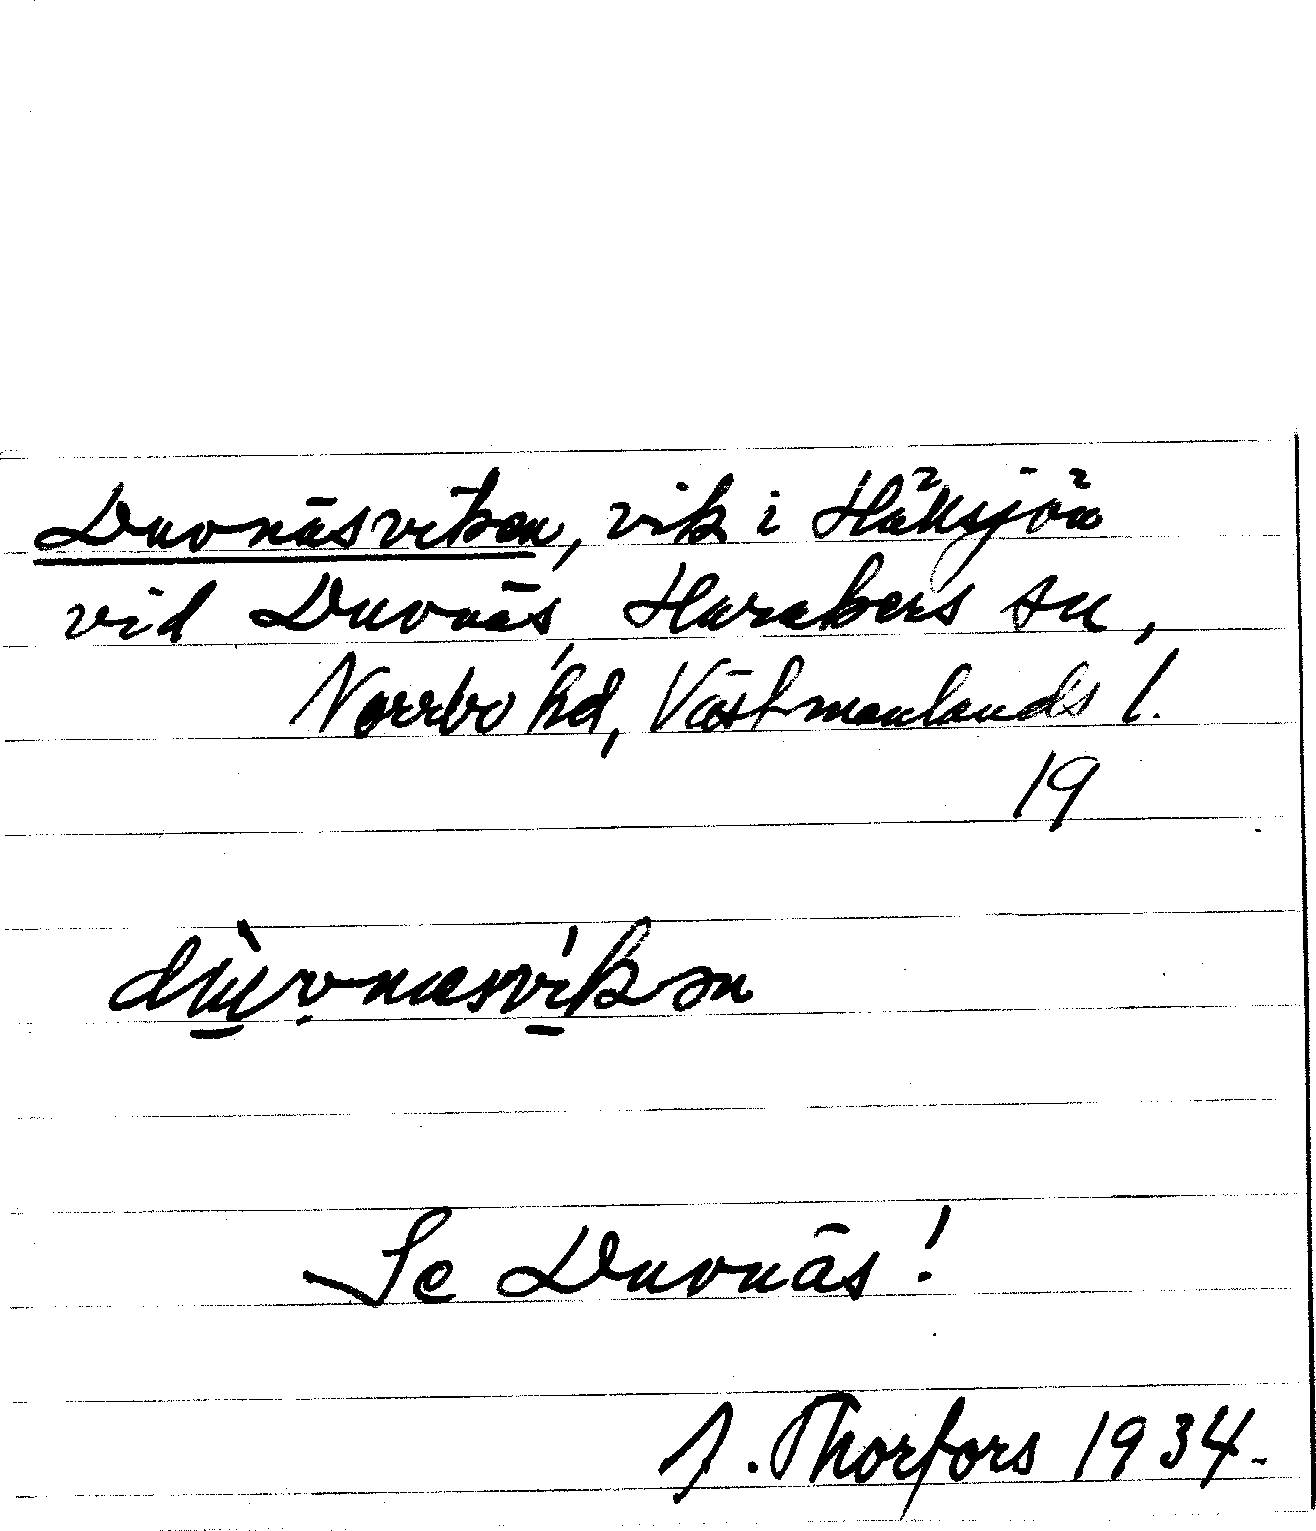 Duvnäsviken, vik i Hällsjön
vid Duvnäs, Harakers sn,
Norrbo hd, Västmanlands l.
19
Se Duvnäs!
J. Thorfors 1934.